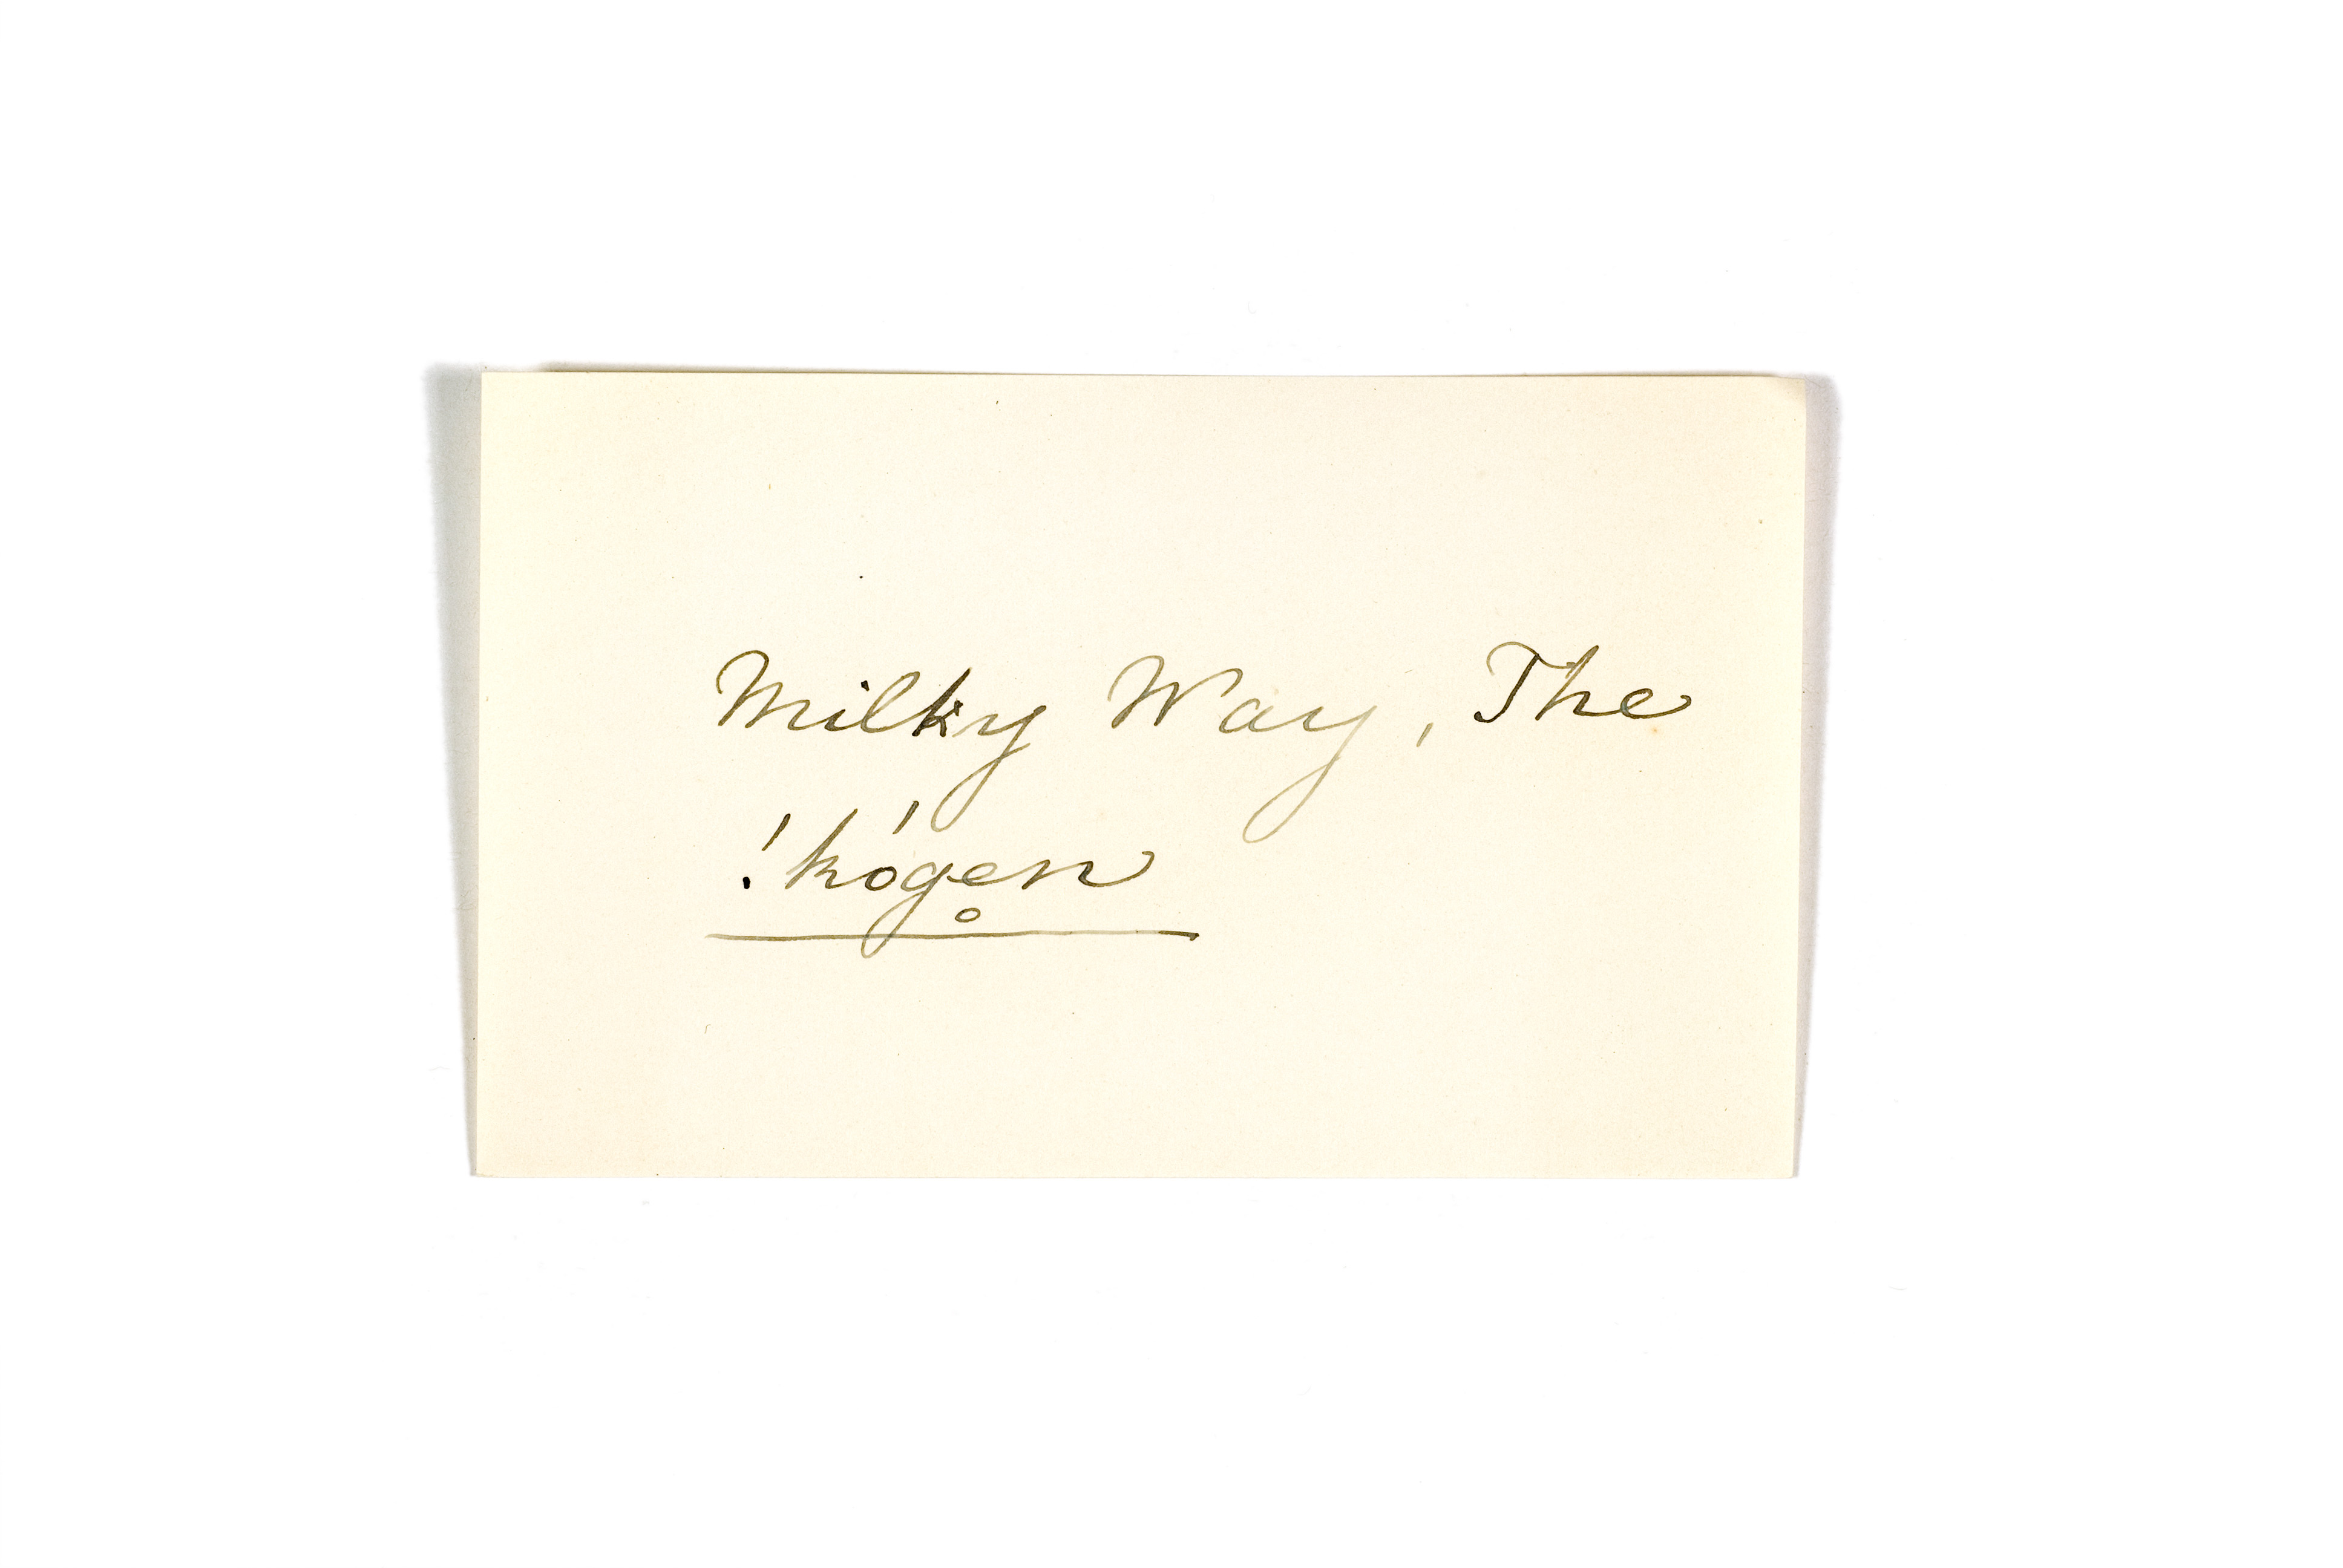 Milky Way, The
!kóge̥n